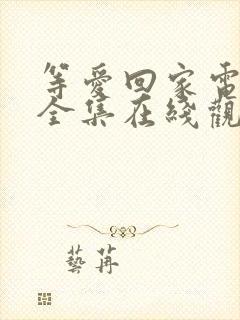 等愛回家電
全集在綫觀
藝苒